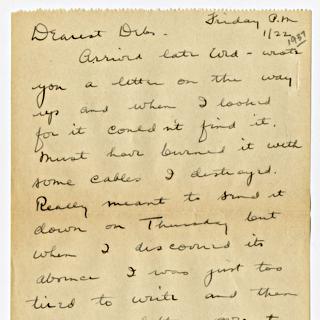 Friday P.M
1/22
1937
Dearest Debs.
Arrived late Wed - wrote
you a letter on the way
up and when I looked
for it couldn't find it.
Must have burned it with
some cables I destroyed.
Really meant to send it
down on Thursday but
when I discovered its
absence I was just too
tired to write and then